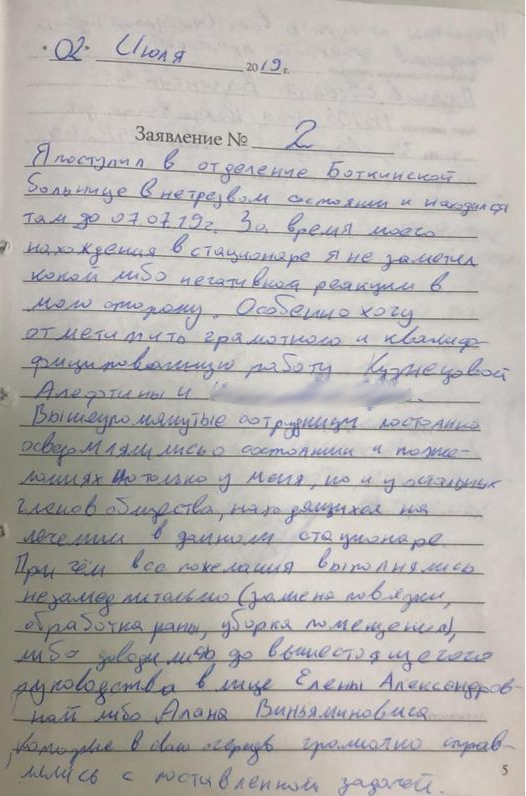 "02" Июля 2019 г.
Заявление № 2
Я поступил в отделение Боткинской
больнице в нетрезвом состоянии и находился
там до 07.07.19г. За время моего
нахождения в стационаре я не заметил
какой либо негативной реакции в
мою сторону. Особенно хочу
отметить грамотного и квалиф-
фицированную работу Кузнецовой
Алефтины и
Вышеупомянутые сотрудницы постоянно
осведомлялись о состоянии и поже-
ланиях не только у меня, но и у остальных
членов общества, находящихся на
лечении в данном стационаре
При чём все пожелания выполнялись
незамедлительно (замена повязки,
обработка раны, уборка помещения),
либо доводились до вышестоящего
руководства в лице Елены Александров-
ной либо Алана Виньяминовича
, которые в свою очередь грамотно справ-
лялись с поставленной задачей.
5